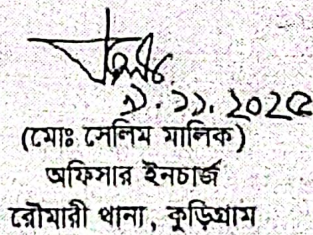 ৯.১১.২০২৫
(মোঃ সেলিম মালিক)
অফিসার ইনচার্জ
রৌমারী থানা, কুড়িগ্রাম